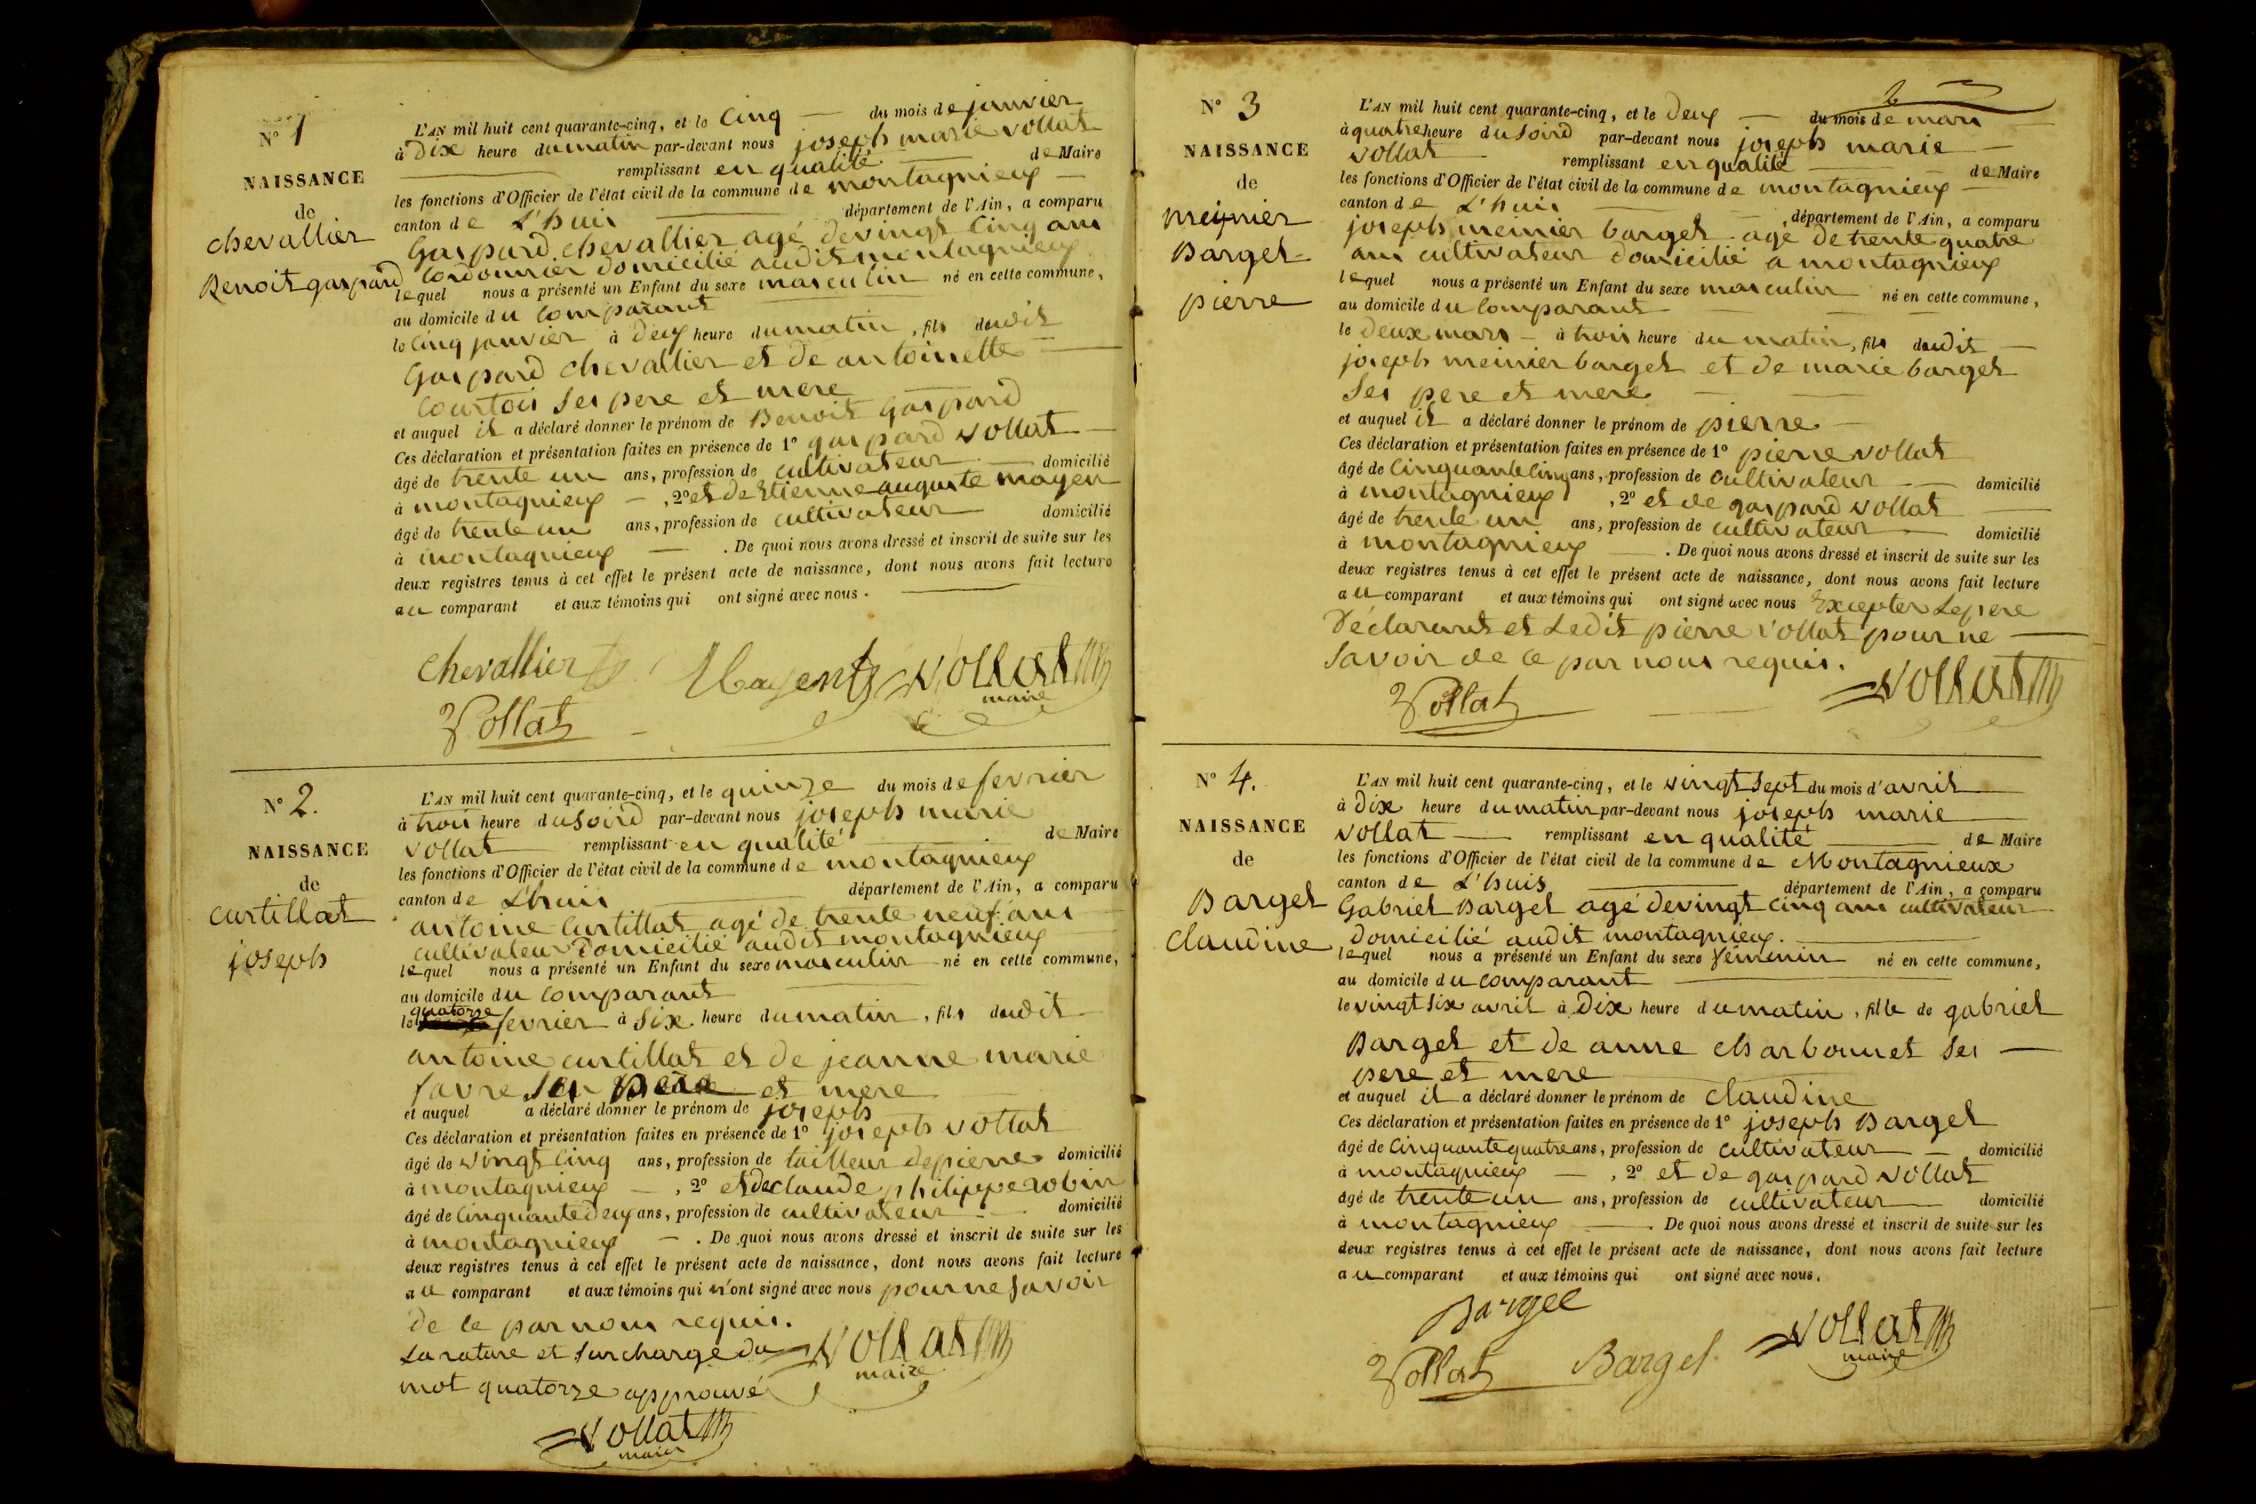 N° 1
NAISSANCE
de
chevallier
Benoit gaspard
L'AN mil huit cent quarante-cinq, et le Cinq du mois de janvier
à Dix heure du matin par-devant nous joseph marie vollat
remplissant en qualité de Maire
les fonctions d'Officier de l'état civil de la commune de montagnieux
canton de L'huis département de l'Ain, a comparu
Gaspard chevallier agé de vingt Cinq ans
Cordonnier domicilié audit montagnieux
lequel nous a présenté un Enfant du sexe masculin né en cette commune,
au domicile du Comparant
le Cinq janvier à Deux heure du matin, fils dudit
Gaspard chevallier et de antoinette
Courtois ses pere et mere
et auquel il a déclaré donner le prénom de Benoit Gaspard
Ces déclaration et présentation faites en présence de 1° gaspard vollat
âgé de trente un ans, profession de cultivateur domicilié
à montagnieux, 2° et de Etienne auguste mayen
âgé de trente un ans, profession de cultivateur domicilié
à montagnieux. De quoi nous avons dressé et inscrit de suite sur les
deux registres tenus à cet effet le présent acte de naissance, dont nous avons fait lecture
au comparant et aux témoins qui ont signé avec nous.
chevallier vollat
maire
Vollat
N° 2.
NAISSANCE
de
curtillat
joseph
L'AN mil huit cent quarante-cinq, et le quinze du mois de fevrier
à trois heure du soird par-devant nous joseph marie
vollat remplissant en qualité de Maire
les fonctions d'Officier de l'état civil de la commune de montagnieux
canton de L'huis département de l'Ain, a comparu
antoine Curtillat agé de trente neuf ans
cultivateur Domicilié audit montagnieux
lequel nous a présenté un Enfant du sexe masculin né en cette commune,
au domicile du Comparant
quatorze
le fevrier à Six heure du matin, fils dudit
antoine curtillat et de jeanne marie
favre ses pere et mere
et auquel a déclaré donner le prénom de joseph
Ces déclaration et présentation faites en présence de 1° joseph vollat
âgé de vingt Cinq ans, profession de tailleur de pierre domicilié
à montagnieux, 2° et de claude philippe robin
âgé de Cinquante Deux ans, profession de cultivateur domicilié
à montagnieux. De quoi nous avons dressé et inscrit de suite sur les
deux registres tenus à cet effet le présent acte de naissance, dont nous avons fait lecture
au comparant et aux témoins qui n'ont signé avec nous pour ne Savoir
de ce par nous requis.
La rature et Surcharge du vollat
maire
mot quatorze approuvé
vollat
maire
N° 3
NAISSANCE
de
meynier
Barget
pierre
L'AN mil huit cent quarante-cinq, et le Deux du mois de mars
à quatre heure du Soird par-devant nous joseph marie
vollat remplissant en qualité de Maire
les fonctions d'Officier de l'état civil de la commune de montagnieux
canton de L'huis, département de l'Ain, a comparu
joseph meinier barget agé de trente quatre
ans cultivateur domicilié a montagnieux
lequel nous a présenté un Enfant du sexe masculin né en cette commune,
au domicile du Comparant
le deux mars à trois heure du matin, fils dudit
joseph meinier barget et de marie barget
Ses pere et mere
et auquel il a déclaré donner le prénom de pierre
Ces déclaration et présentation faites en présence de 1° pierre vollat
âgé de Cinquante Cinq ans, profession de cultivateur domicilié
à montagnieux, 2° et de gaspard vollat
âgé de trente un ans, profession de cultivateur domicilié
à montagnieux. De quoi nous avons dressé et inscrit de suite sur les
deux registres tenus à cet effet le présent acte de naissance, dont nous avons fait lecture
au comparant et aux témoins qui ont signé avec nous Excepter Le pere
Déclarant et Ledit pierre vollat pour ne
Savoir de ce par nous requis.
Vollat vollat
N° 4.
NAISSANCE
de
Barget
claudine
L'AN mil huit cent quarante-cinq, et le vingt Sept du mois d'avril
à Dix heure du matin par-devant nous joseph marie
vollat remplissant en qualité de Maire
les fonctions d'Officier de l'état civil de la commune de Montagnieux
canton de L'huis département de l'Ain, a comparu
Gabriel Barget agé de vingt Cinq ans cultivateur
domicilié audit montagnieux.
lequel nous a présenté un Enfant du sexe féminin né en cette commune,
au domicile du comparant
le vingt six avril à Dix heure du matin, fille de gabriel
Barget et de anne charbonnet Ses
pere et mere
et auquel il a déclaré donner le prénom de claudine
Ces déclaration et présentation faites en présence de 1° joseph Barget
âgé de Cinquante quatre ans, profession de cultivateur domicilié
à montagnieux, 2° et de gaspard vollat
âgé de trente un ans, profession de cultivateur domicilié
à montagnieux. De quoi nous avons dressé et inscrit de suite sur les
deux registres tenus à cet effet le présent acte de naissance, dont nous avons fait lecture
au comparant et aux témoins qui ont signé avec nous.
Bargee vollat
maire
Vollat Barget